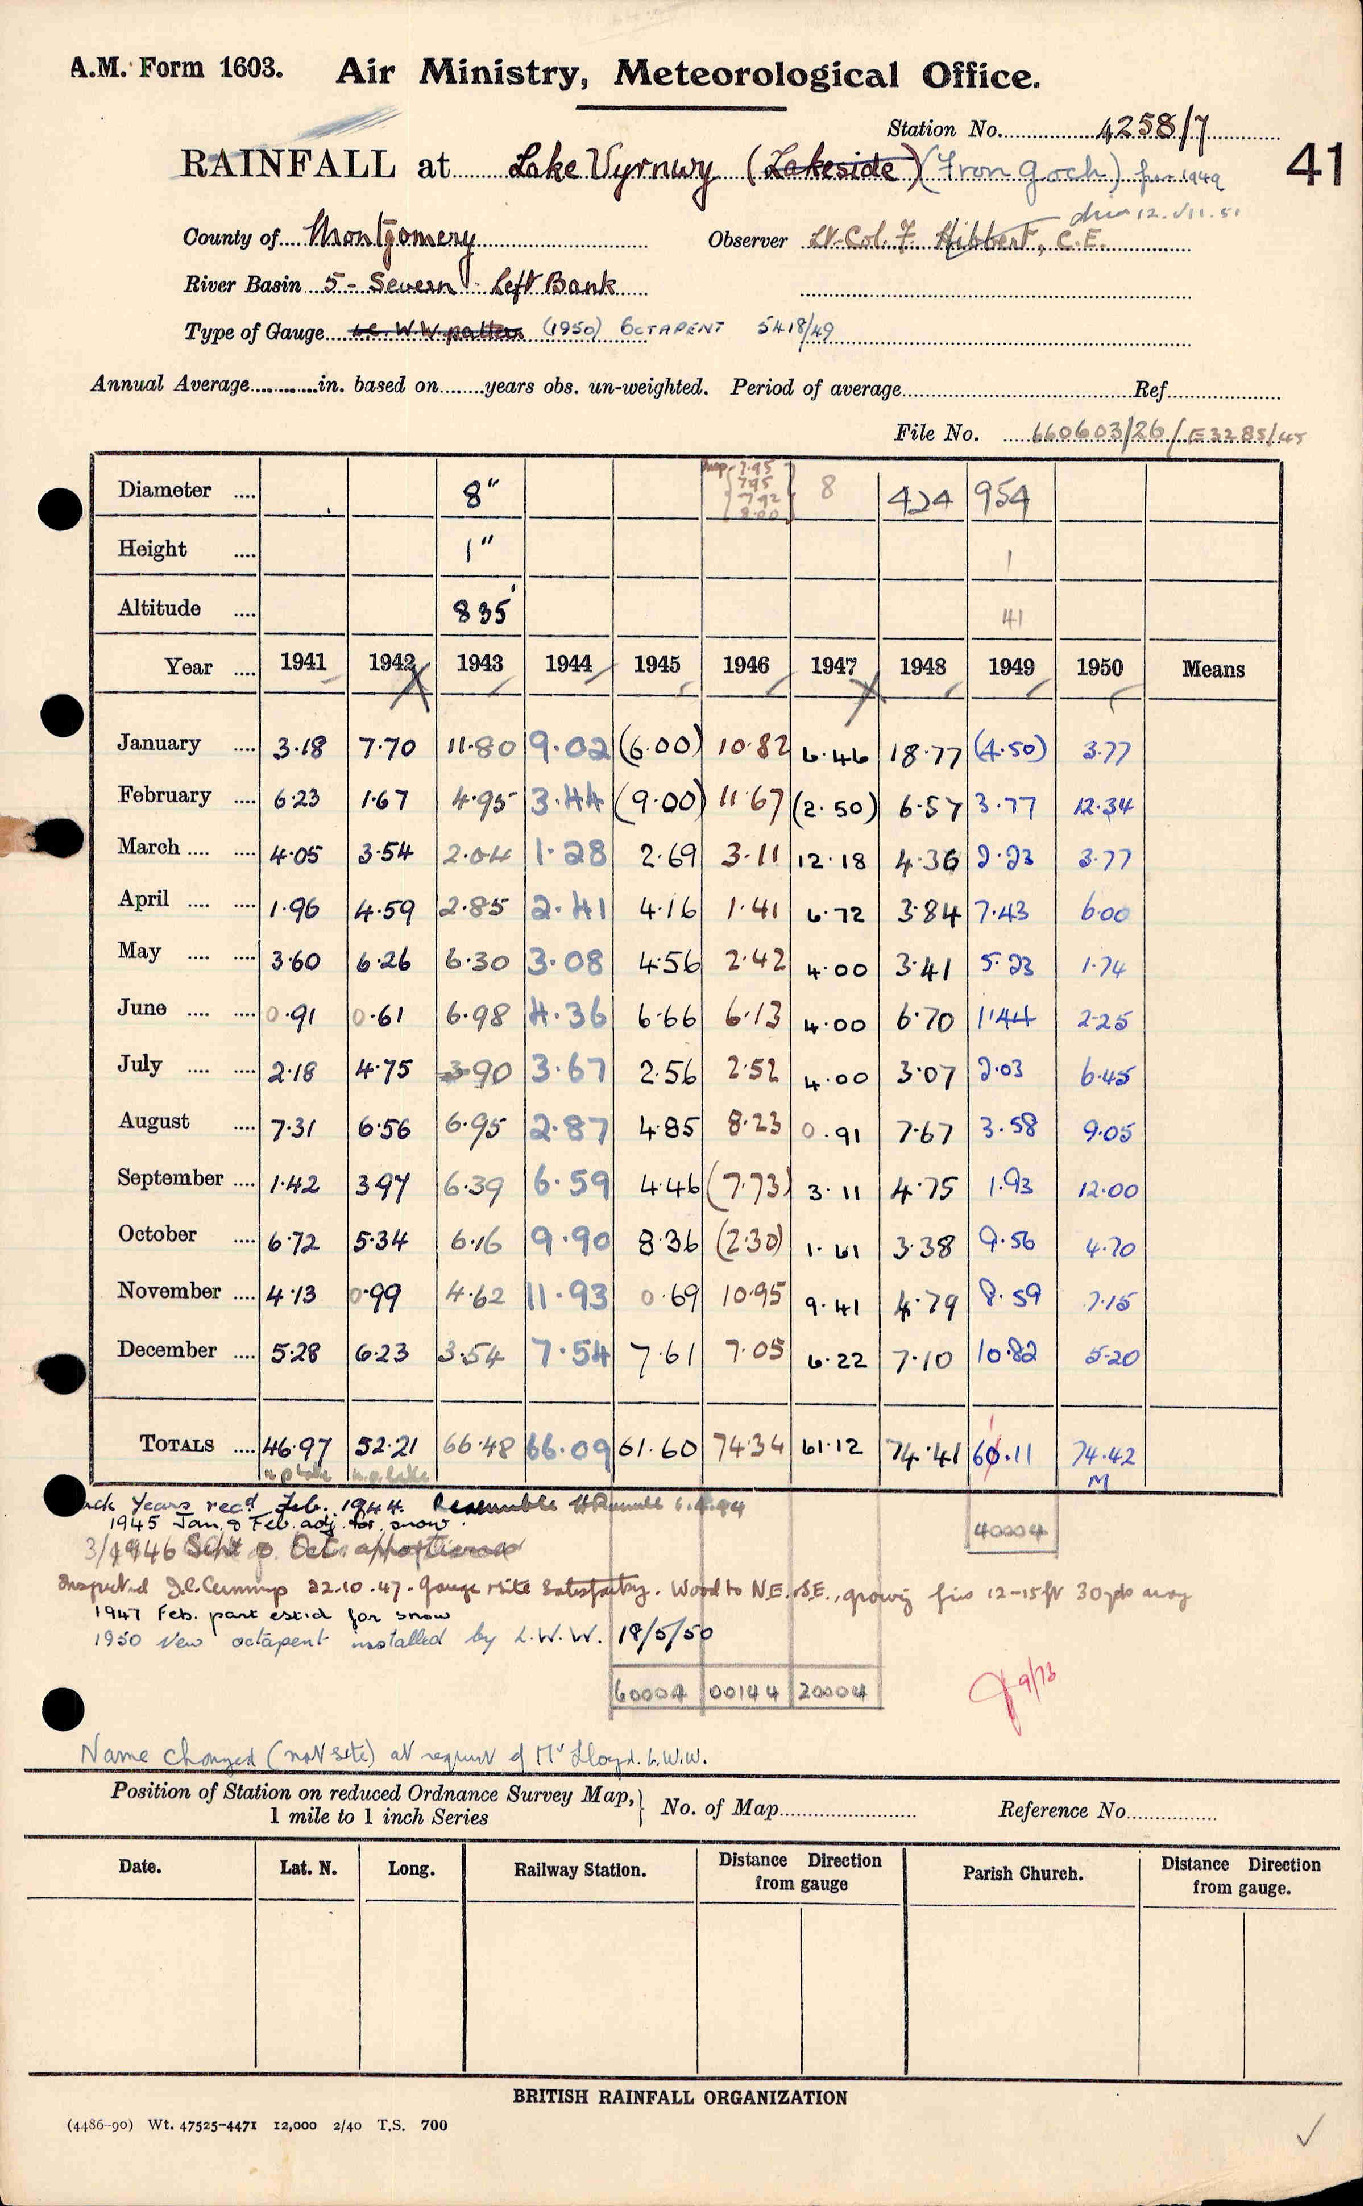 A.M. Form 1603. Air Ministry, Meteorological Office.
Station No. 4258/7
RAINFALL at Lake Vyrnwy (Lakeside) (Fron Goch) from 1949
41
County of Montgomery Observer Lt-Col. F. Hibbert, C.E.
River Basin 5 - Severn Left Bank
Type of Gauge L.C. W.W. pattern (1950) OCTAPENT 5418/49
Annual Average in. based on years obs. un-weighted. Period of average Ref.
File No. 660603/26/E3285/45
Diameter 8" 7.95 7.95 7.92 8.00 8 424 954
Height 1" 1
Altitude 835' 41
Year 1941 1942 1943 1944 1945 1946 1947 1948 1949 1950 Means
January 3.18 7.70 11.80 9.02 (6.00) 10.82 6.46 18.77 (4.50) 3.77
February 6.23 1.67 4.95 3.44 (9.00) 11.67 (2.50) 6.57 3.77 12.34
March 4.05 3.54 2.04 1.28 2.69 3.11 12.18 4.36 2.23 3.77
April 1.96 4.59 2.85 2.41 4.16 1.41 6.72 3.84 7.43 6.00
May 3.60 6.26 6.30 3.08 4.56 2.42 4.00 3.41 5.23 1.74
June 0.91 0.61 6.98 4.36 6.66 6.13 4.00 6.70 1.44 2.25
July 2.18 4.75 3.90 3.67 2.56 2.52 4.00 3.07 2.03 6.45
August 7.31 6.56 6.95 2.87 4.85 8.23 0.91 7.67 3.58 9.05
September 1.42 3.97 6.39 6.59 4.46 (7.73) 3.11 4.75 1.93 12.00
October 6.72 5.34 6.16 9.90 8.36 (2.30) 1.61 3.38 9.56 4.70
November 4.13 0.99 4.62 11.93 0.69 10.95 9.41 4.79 8.59 7.15
December 5.28 6.23 3.54 7.54 7.61 7.05 6.22 7.10 10.82 5.20
TOTALS 46.97 52.21 66.48 66.09 61.60 74.34 61.12 74.41 60.11 74.42
1
M
Years recd Feb. 1944.
1945 Jan. & Feb. adj. for snow.
40004
1946 Sept & Oct. apportioned
Inspected J.C. Cumming 22.10.47. Gauge & site satisfactory. Wood to N.E. & S.E., growing firs 12-15ft 30 yds away
1947 Feb. part estd for snow
1950 New octapent installed by L.W.W. 18/5/50
60004 00144 20004
9/73
Name changed (not site) at request of Mr Lloyd. L.W.W.
Position of Station on reduced Ordnance Survey Map, 1 mile to 1 inch Series No. of Map Reference No.
Date. Lat. N. Long. Railway Station. Distance Direction from gauge Parish Church. Distance Direction from gauge.
BRITISH RAINFALL ORGANIZATION
(4486-90) Wt. 47525-4471 12,000 2/40 T.S. 700